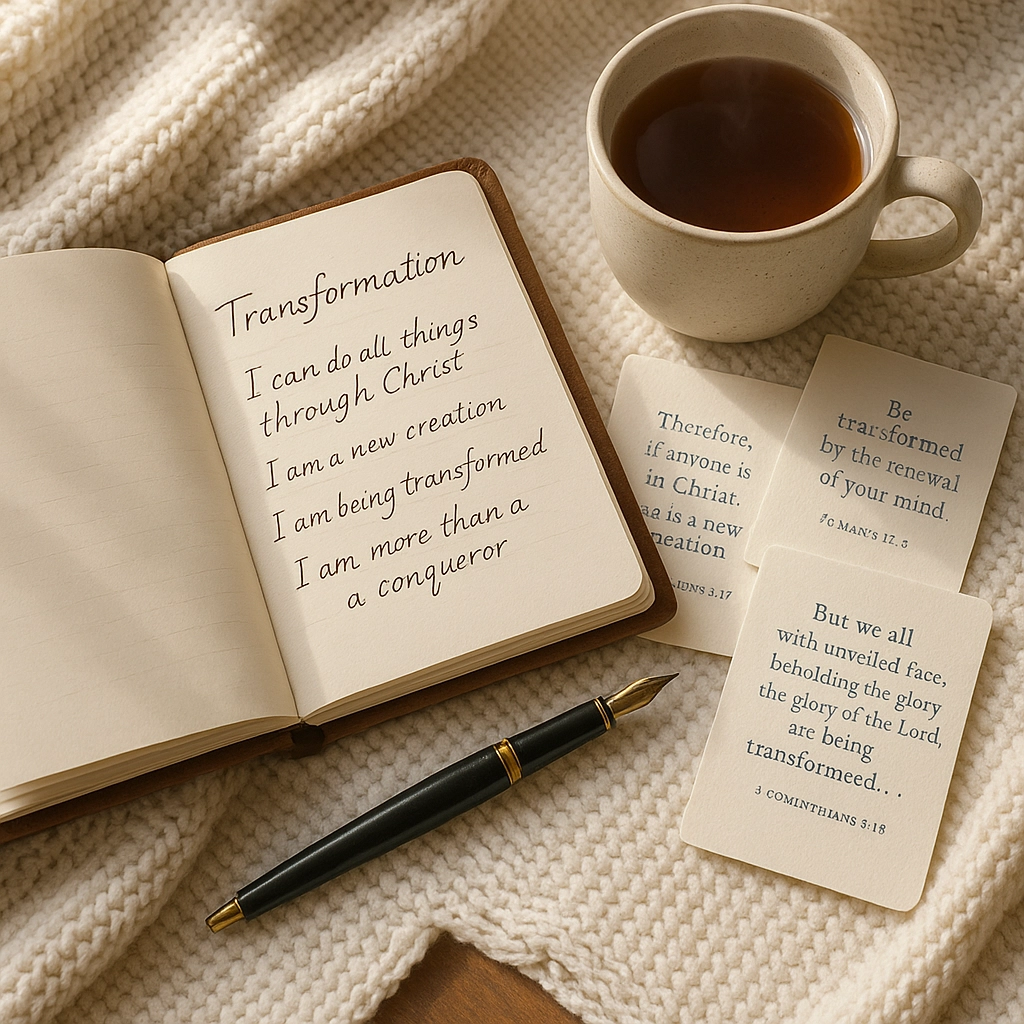 Transformation
I can do all things
through Christ
I am a new creation
I am being transformed
I am more than a
a conqueror
Therefore,
if anyone is
in Chriat.
is a new
neation
3.17
Be
trarsformed
by the renewal
of your mind.
MAN'S 12.
But we all
with unveiled face,
beholding the glory
the glory of the Lord,
are being
transformeed...
3 COMINTHIANS 3:18